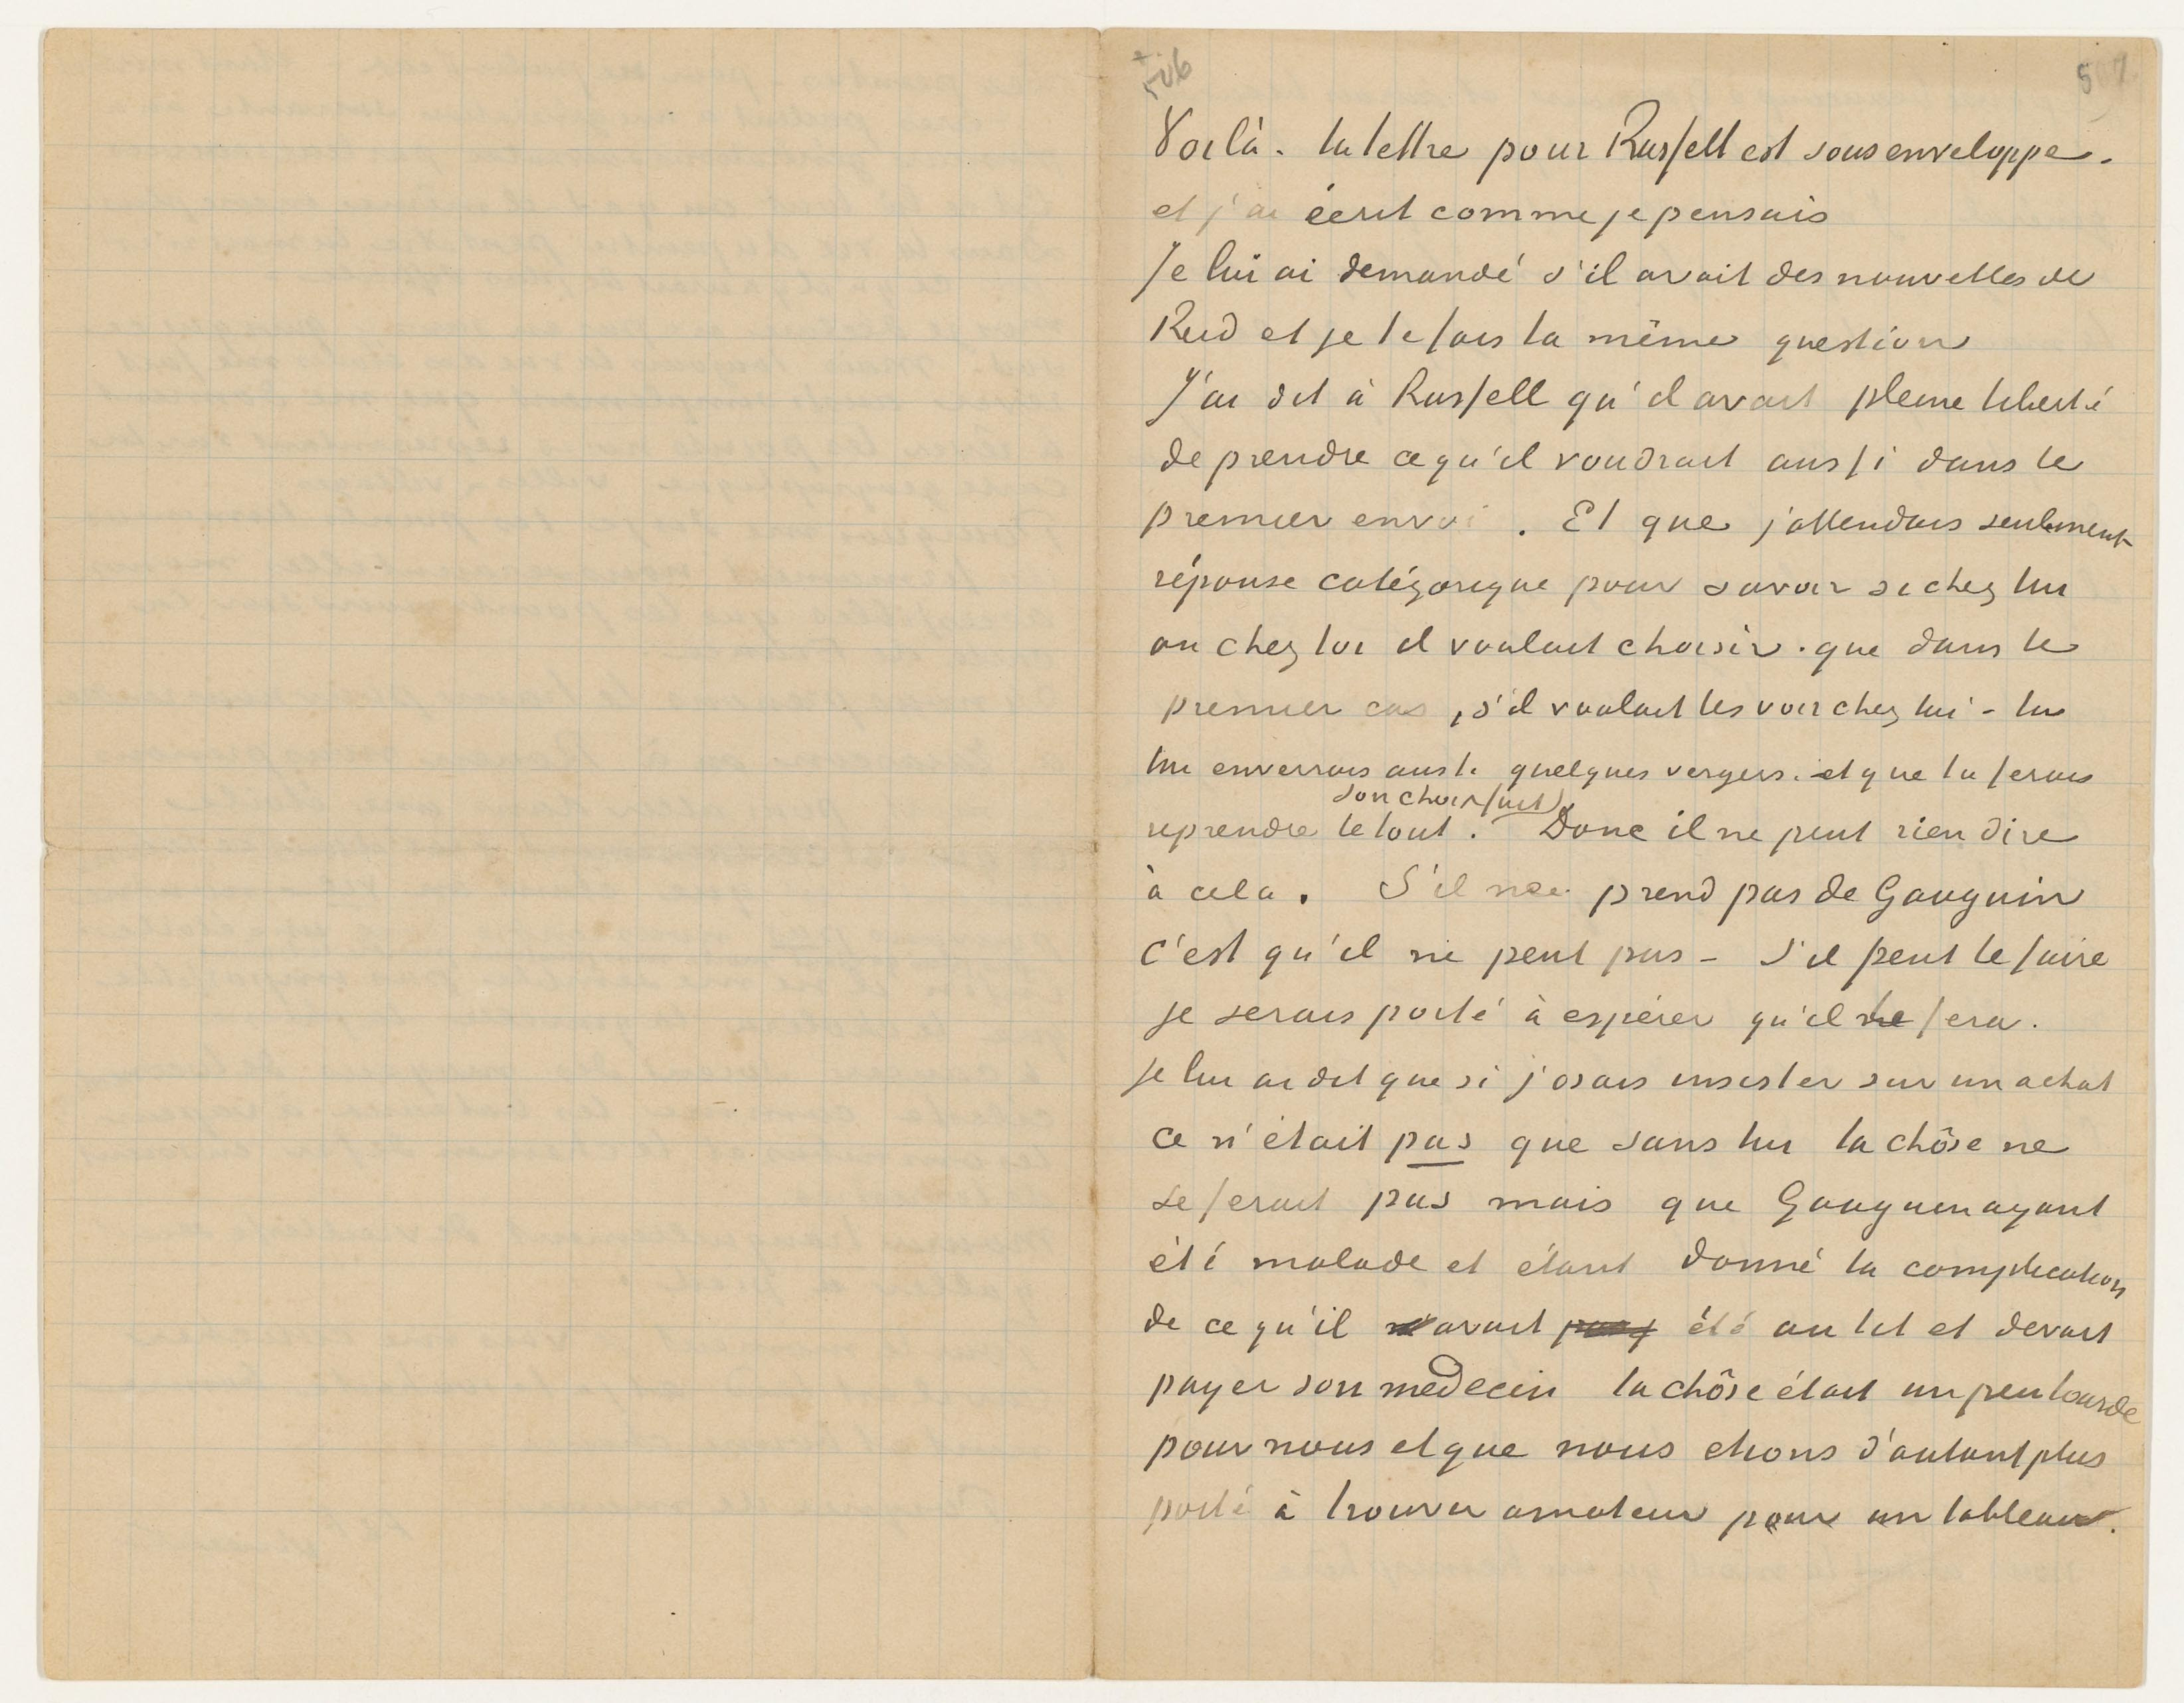 526
Voilà. la lettre pour Russell est sous enveloppe.
et j'ai écrit comme je pensais
Je lui ai demandé s'il avait des nouvelles de
Reid et je te fais la même question
J'ai dit à Russell qu'il avait pleine liberté
de prendre ce qu'il voudrait aussi dans le
premier envoi. Et que j'attendais seulement
réponse catégorique pour savoir si chez lui
ou chez toi il voulait choisir. que dans le
premier cas, s'il voulait les voir chez lui - tu
lui enverrais aussi quelques vergers. et que tu ferais
son choix fait
reprendre le tout. Donc il ne peut rien dire
à cela. S'il ne prend pas de Gauguin
c'est qu'il ne peut pas - S'il peut le faire
je serais porté à espérer qu'il le fera.
Je lui ai dit que si j'osais insister sur un achat
ce n'était pas que sans lui la chôse ne
se ferait pas mais que Gauguin ayant
été malade et étant donné la complication
de ce qu'il avait été au lit et devait
payer son médecin la chôse était un peu lourde
pour nous et que nous etions d'autant plus
porté à trouver amateur pour un tableau.